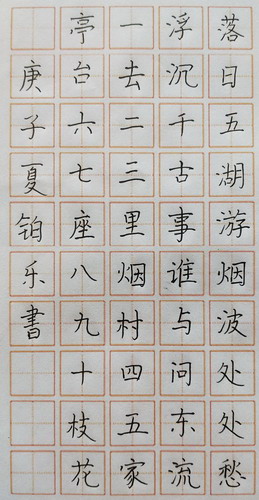 落日五湖游烟波处处愁
浮沉千古事谁与问东流
一去二三里烟村四五家
亭台六七座八九十枝花
庚子夏铂乐書